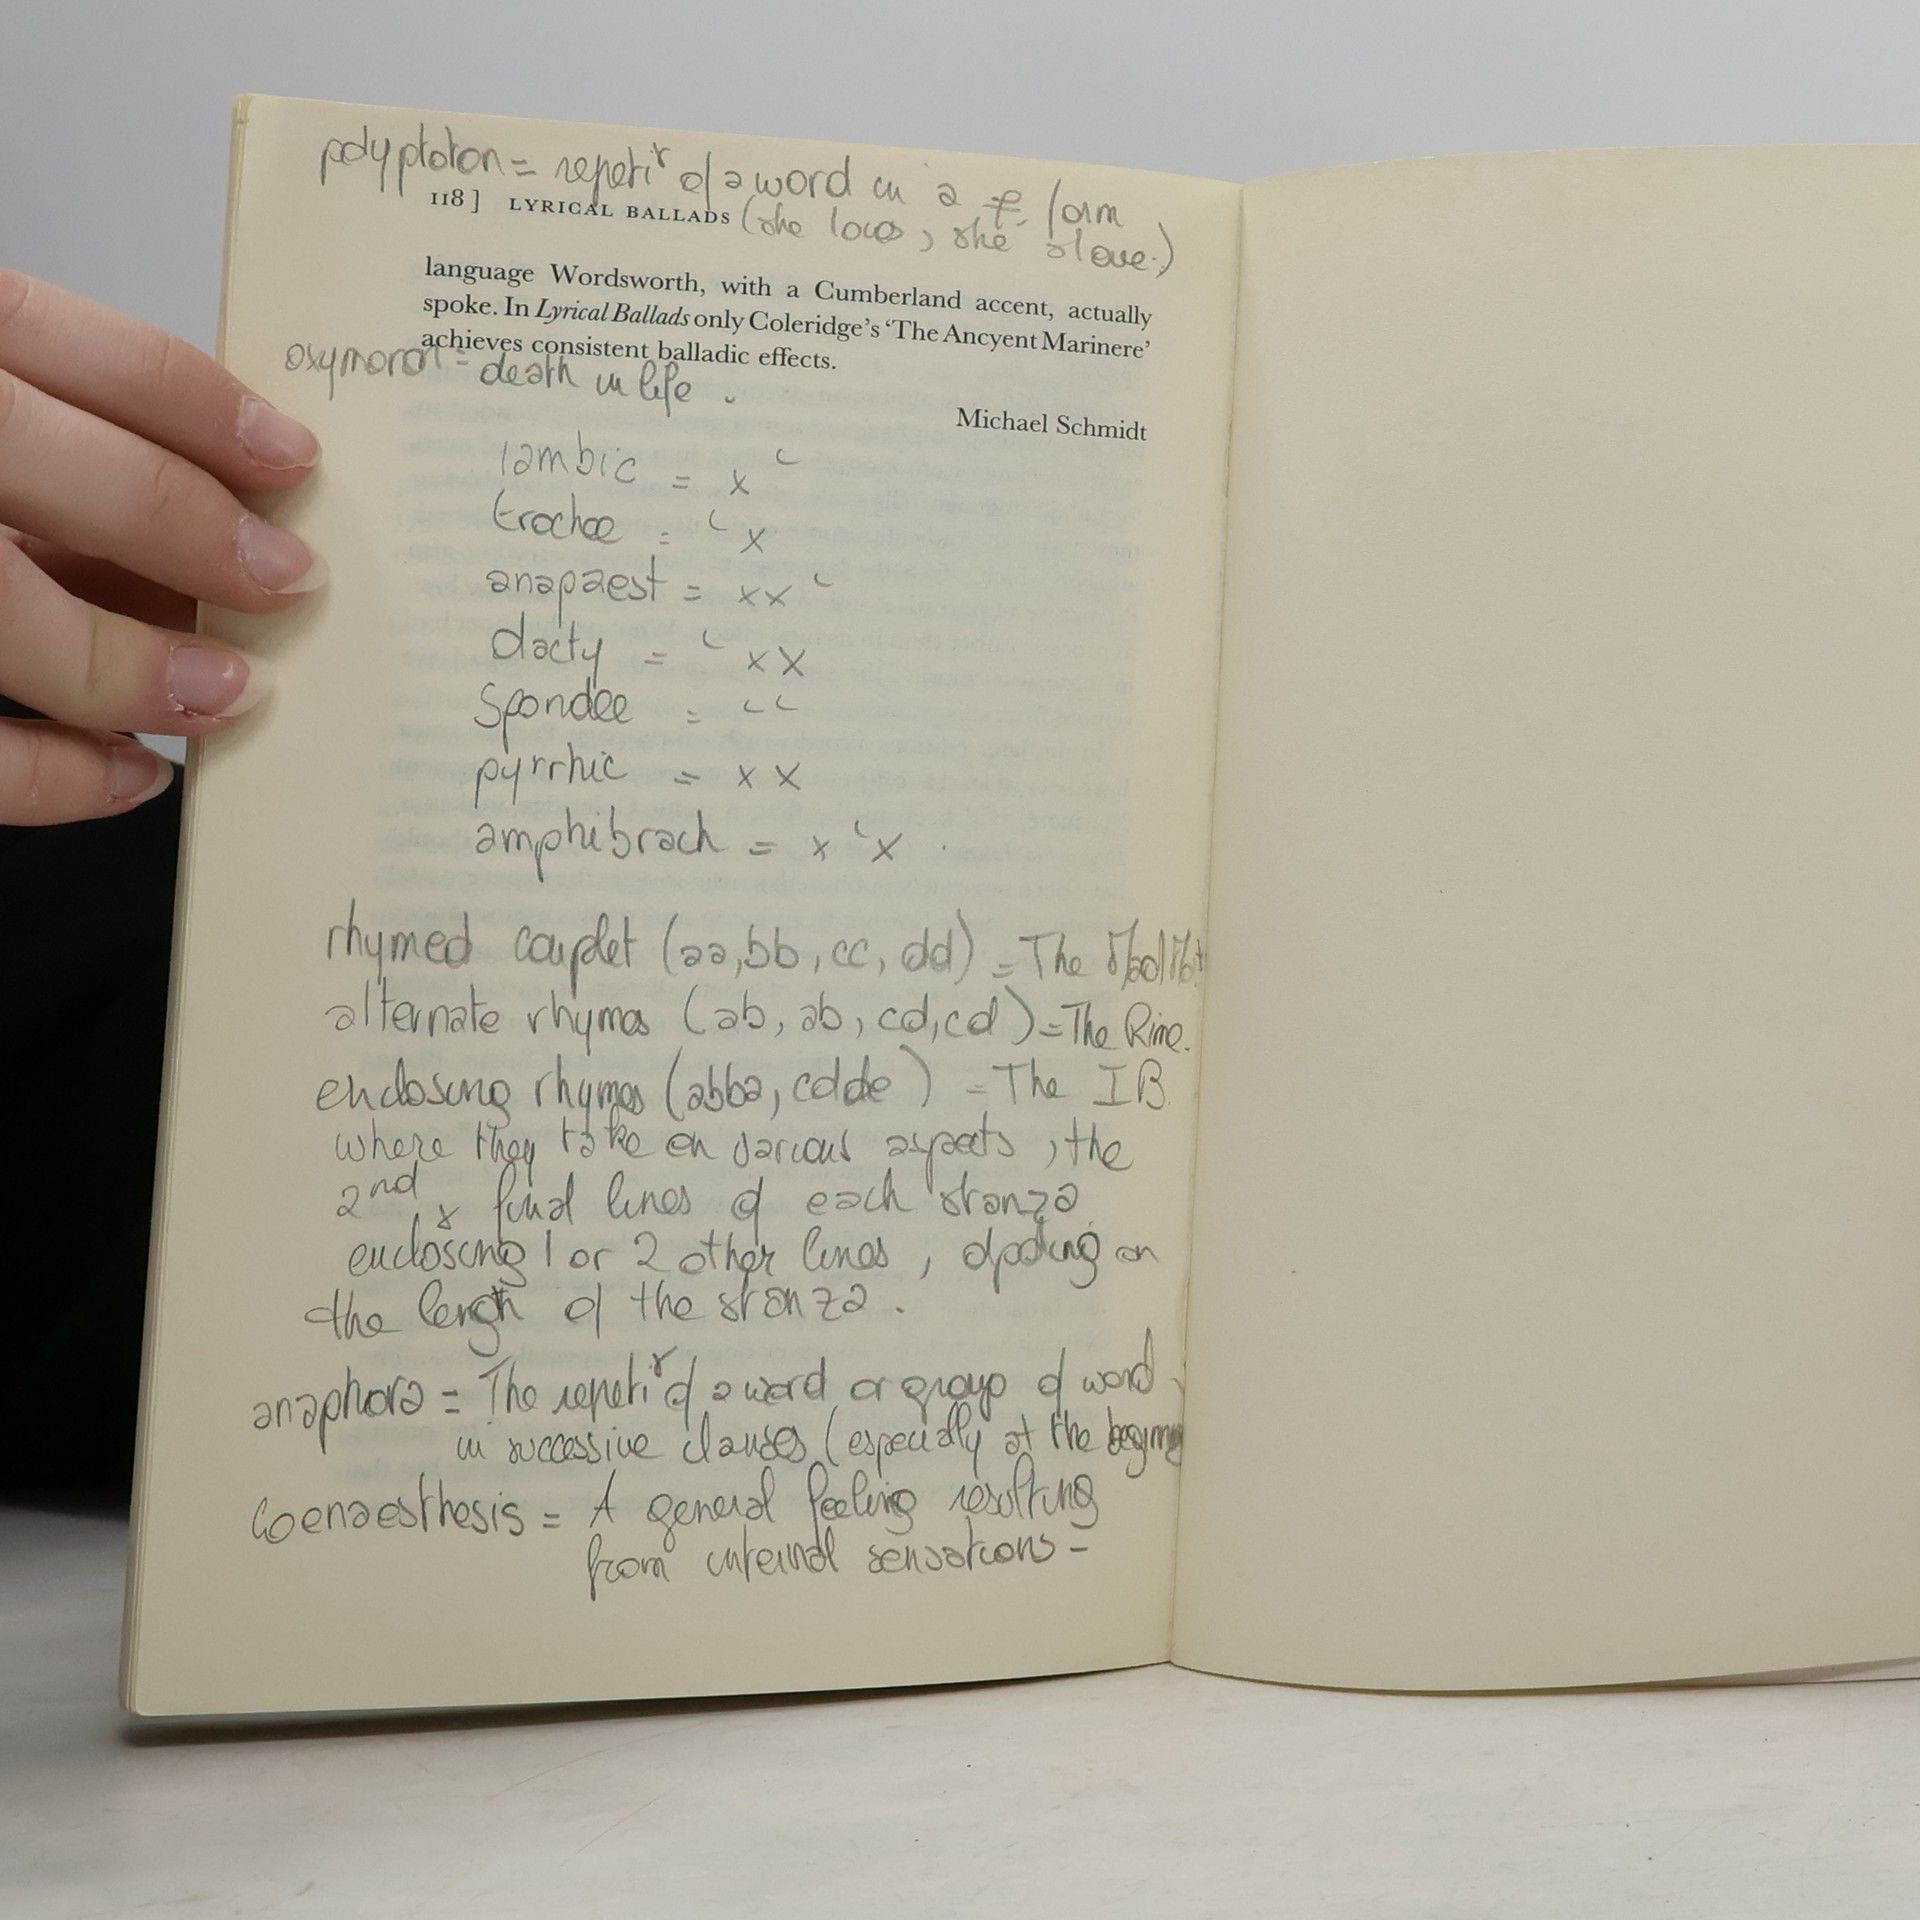 polyptoton = repeti° of a word in a ≠ form
118] LYRICAL BALLADS (she loves, she slave.)
language Wordsworth, with a Cumberland accent, actually
spoke. In Lyrical Ballads only Coleridge's 'The Ancyent Marinere'
achieves consistent balladic effects.
oxymoron = death in life.
Michael Schmidt
iambic = x ʿ
trochee = ʿ x
anapaest = x x ʿ
dacty = ʿ x x
spondee = ʿ ʿ
pyrrhic = x x
amphibrach = x ʿ x
rhymed couplet (aa, bb, cc, dd) = The Mad
alternate rhymes (ab, ab, cd, cd) = The Rime.
enclosing rhymes (abba, cdde) = The IB.
where they take on various aspects, the
2nd & final lines of each stanza
enclosing 1 or 2 other lines, on
the length of the stanza.
anaphora = The repeti° of a word or group of word
in successive clauses (especially at the beginning
Coenaesthesis = A general feeling resulting
from internal sensations =